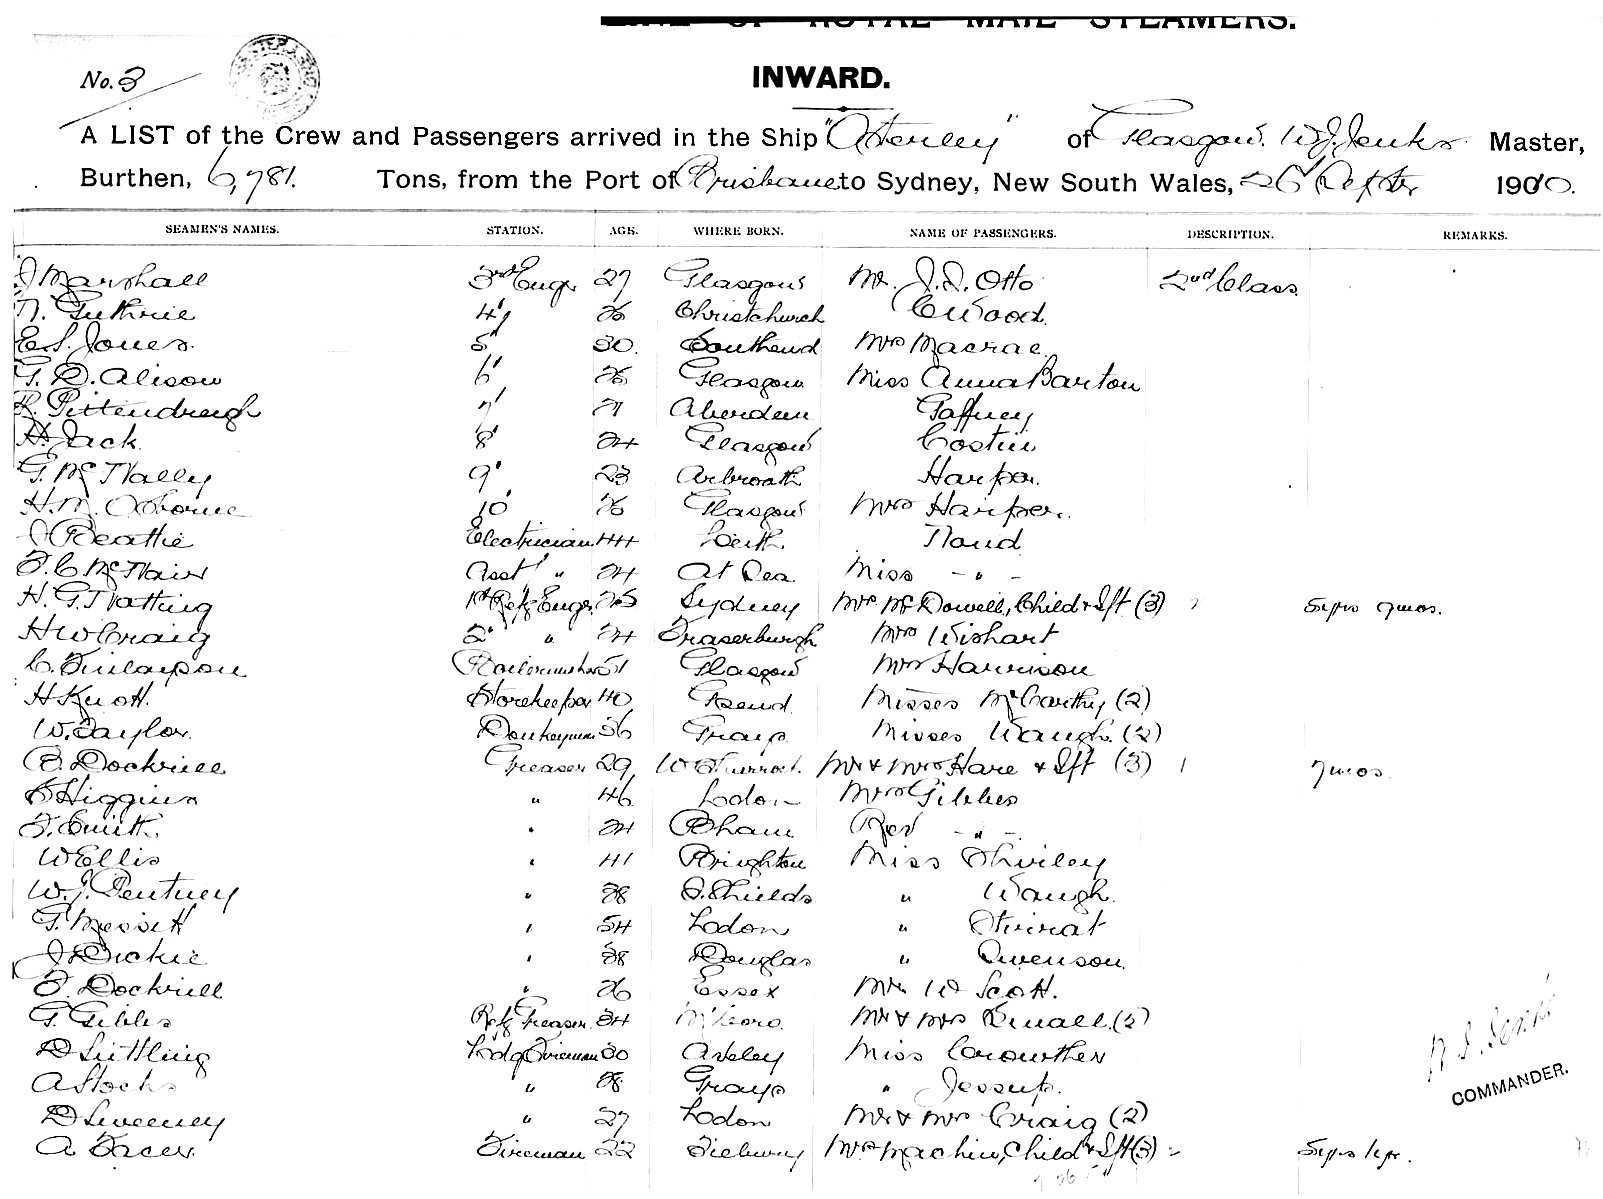 ROYAL MAIL STEAMERS.
No. 3
INWARD.
A LIST of the Crew and Passengers arrived in the Ship "Osterley" of Glasgow. W. J. Jenks Master,
Burthen, 6,781. Tons, from the Port of Brisbane to Sydney, New South Wales, 1910.
SEAMEN'S NAMES. STATION. AGE. WHERE BORN. NAME OF PASSENGERS. DESCRIPTION. REMARKS.
J Marshall 3rd Engr 27 Glasgow Mr. J. J. Otto 2nd Class
N. Guthrie 4" 26 Christchurch C Wood
E. S. Jones 5" 30. Southend Mrs Macrae
G. D. Alison 6" 26 Glasgow Miss Anna Barton
R. Pittendreigh 7" 21 Aberdeen Gaffney
H. Jack 8" 24 Glasgow Costin
G. McNally 9" 23 Arbroath Harper
H. M. Osborne 10" 26 Glasgow Mrs Harper.
J Beattie Electrician 44 Leith Noud
F. C McNair Asst " 24 At Sea Miss - " -
H. G. Natting 1st Refg Engr 25 Sydney Mrs McDowell, Child & Ift (3) 5yrs 7mos.
H W Craig 2" " 24 Fraserburgh Mrs Wishart
C. Finlayson 51 Glasgow Mrs Harrison
H Knott. Storekeeper 40 Gsend Misses McCarthy (2)
W. Taylor. Donkeyman 36 Grays Misses Waugh. (2)
C. Dockrill Greaser 29 Mr & Mrs Hare & Ift (3) 7mos
Higgins " 46 Lodon Mrs Gibbes
F. Smith. " 24 Bham Rev - " -
W Ellis " 41 Brighton Miss Shirley
W. J. Pentney " 38 S. Shields " Waugh.
G. Messett " 54 Lodon " Stirrat
J Dickie " 38 Douglas " Swenson
F. Dockrill " 26 Essex Mr. W Scott.
G. Gibbs Refg Greaser 34 Mr & Mrs (2)
D Suttling Ldg Fireman 30 Aveley Miss Crowther
A Stocks " 28 Grays " Jessup.
D Sweeney " 27 Lodon Mr & Mrs Craig (2)
A Facer. Fireman 22 Mrs Machin, Child & Ift (3) 5yrs 1yr.
COMMANDER.